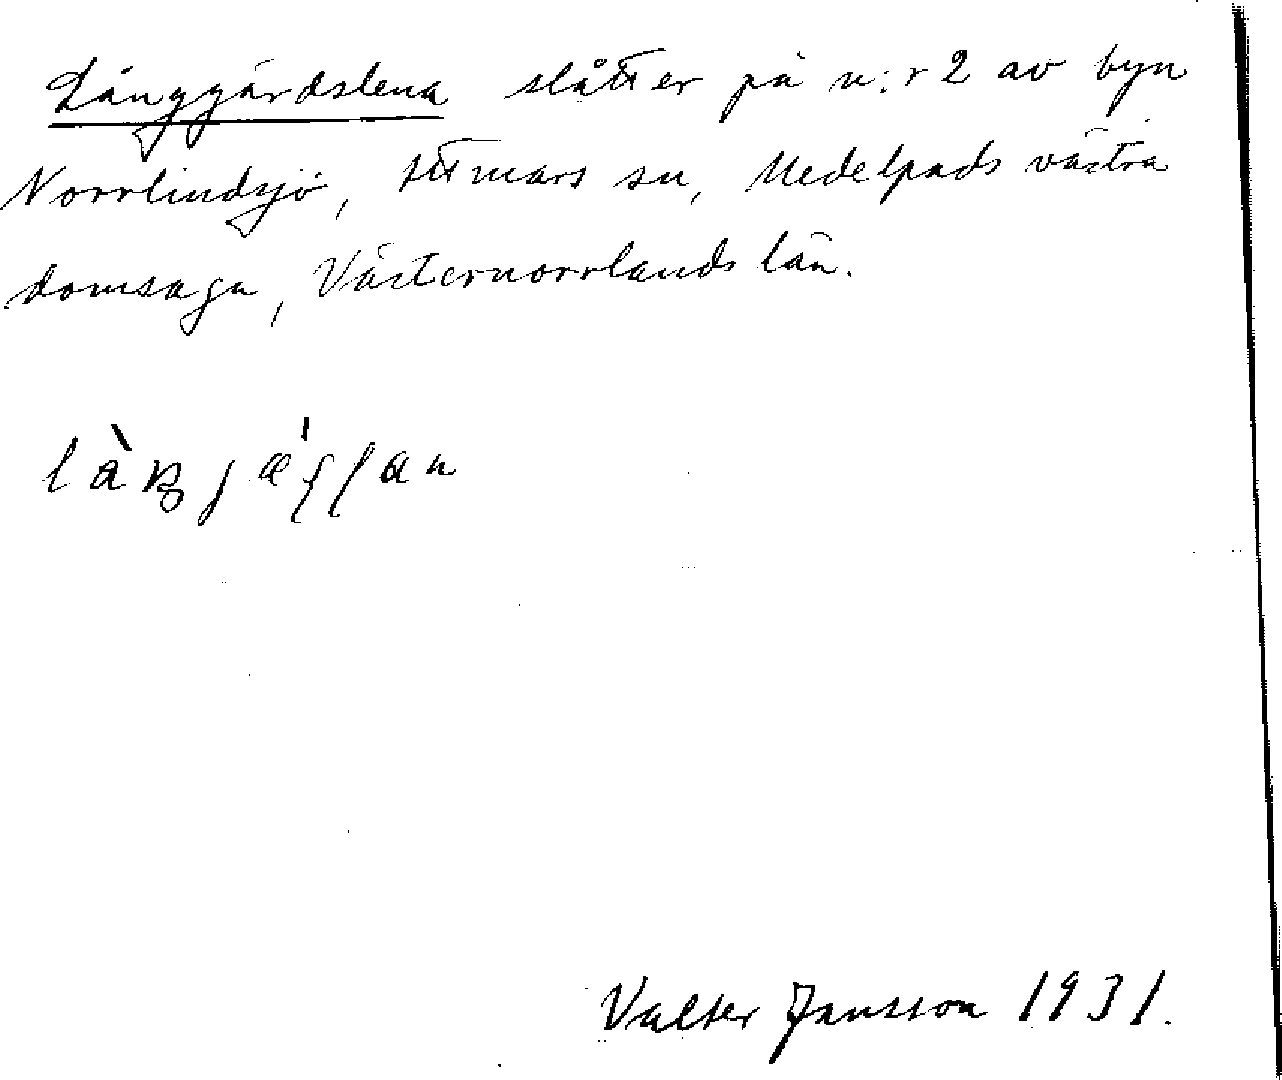 Långgårdslena slåtter på n:r 2 av byn
Norrlindsjö, Attmars sn, Medelpads västra
domsaga, Västernorrlands län.
Valter Jansson 1931.